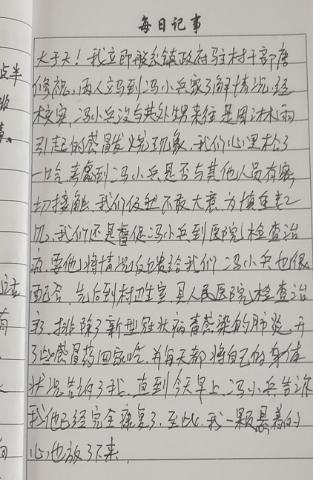 每日记事
大于天！我立即联系镇政府驻村干部詹
修祝，两人立马到冯小兵家了解情况，经
核实，冯小兵没与其外甥来往是因淋雨
引起的感冒发烧现象，我们心里松了
一口气，考虑到冯小兵是否与其他人员有密
切接触，我们仍然不敢大意，为慎重起
见，我们还是督促冯小兵到医院检查治
疗，要他将情况反馈给我们，冯小兵也很
配合，先后到村卫生室、县人民医院检查治
疗，排除了新型冠状病毒感染的肺炎，开
了些感冒药回家吃，并每天都将自己的身体
状况告诉了我，直到今天早上，冯小兵告诉
我他已经完全康复了，至此，我一颗悬着的
心也放了下来。